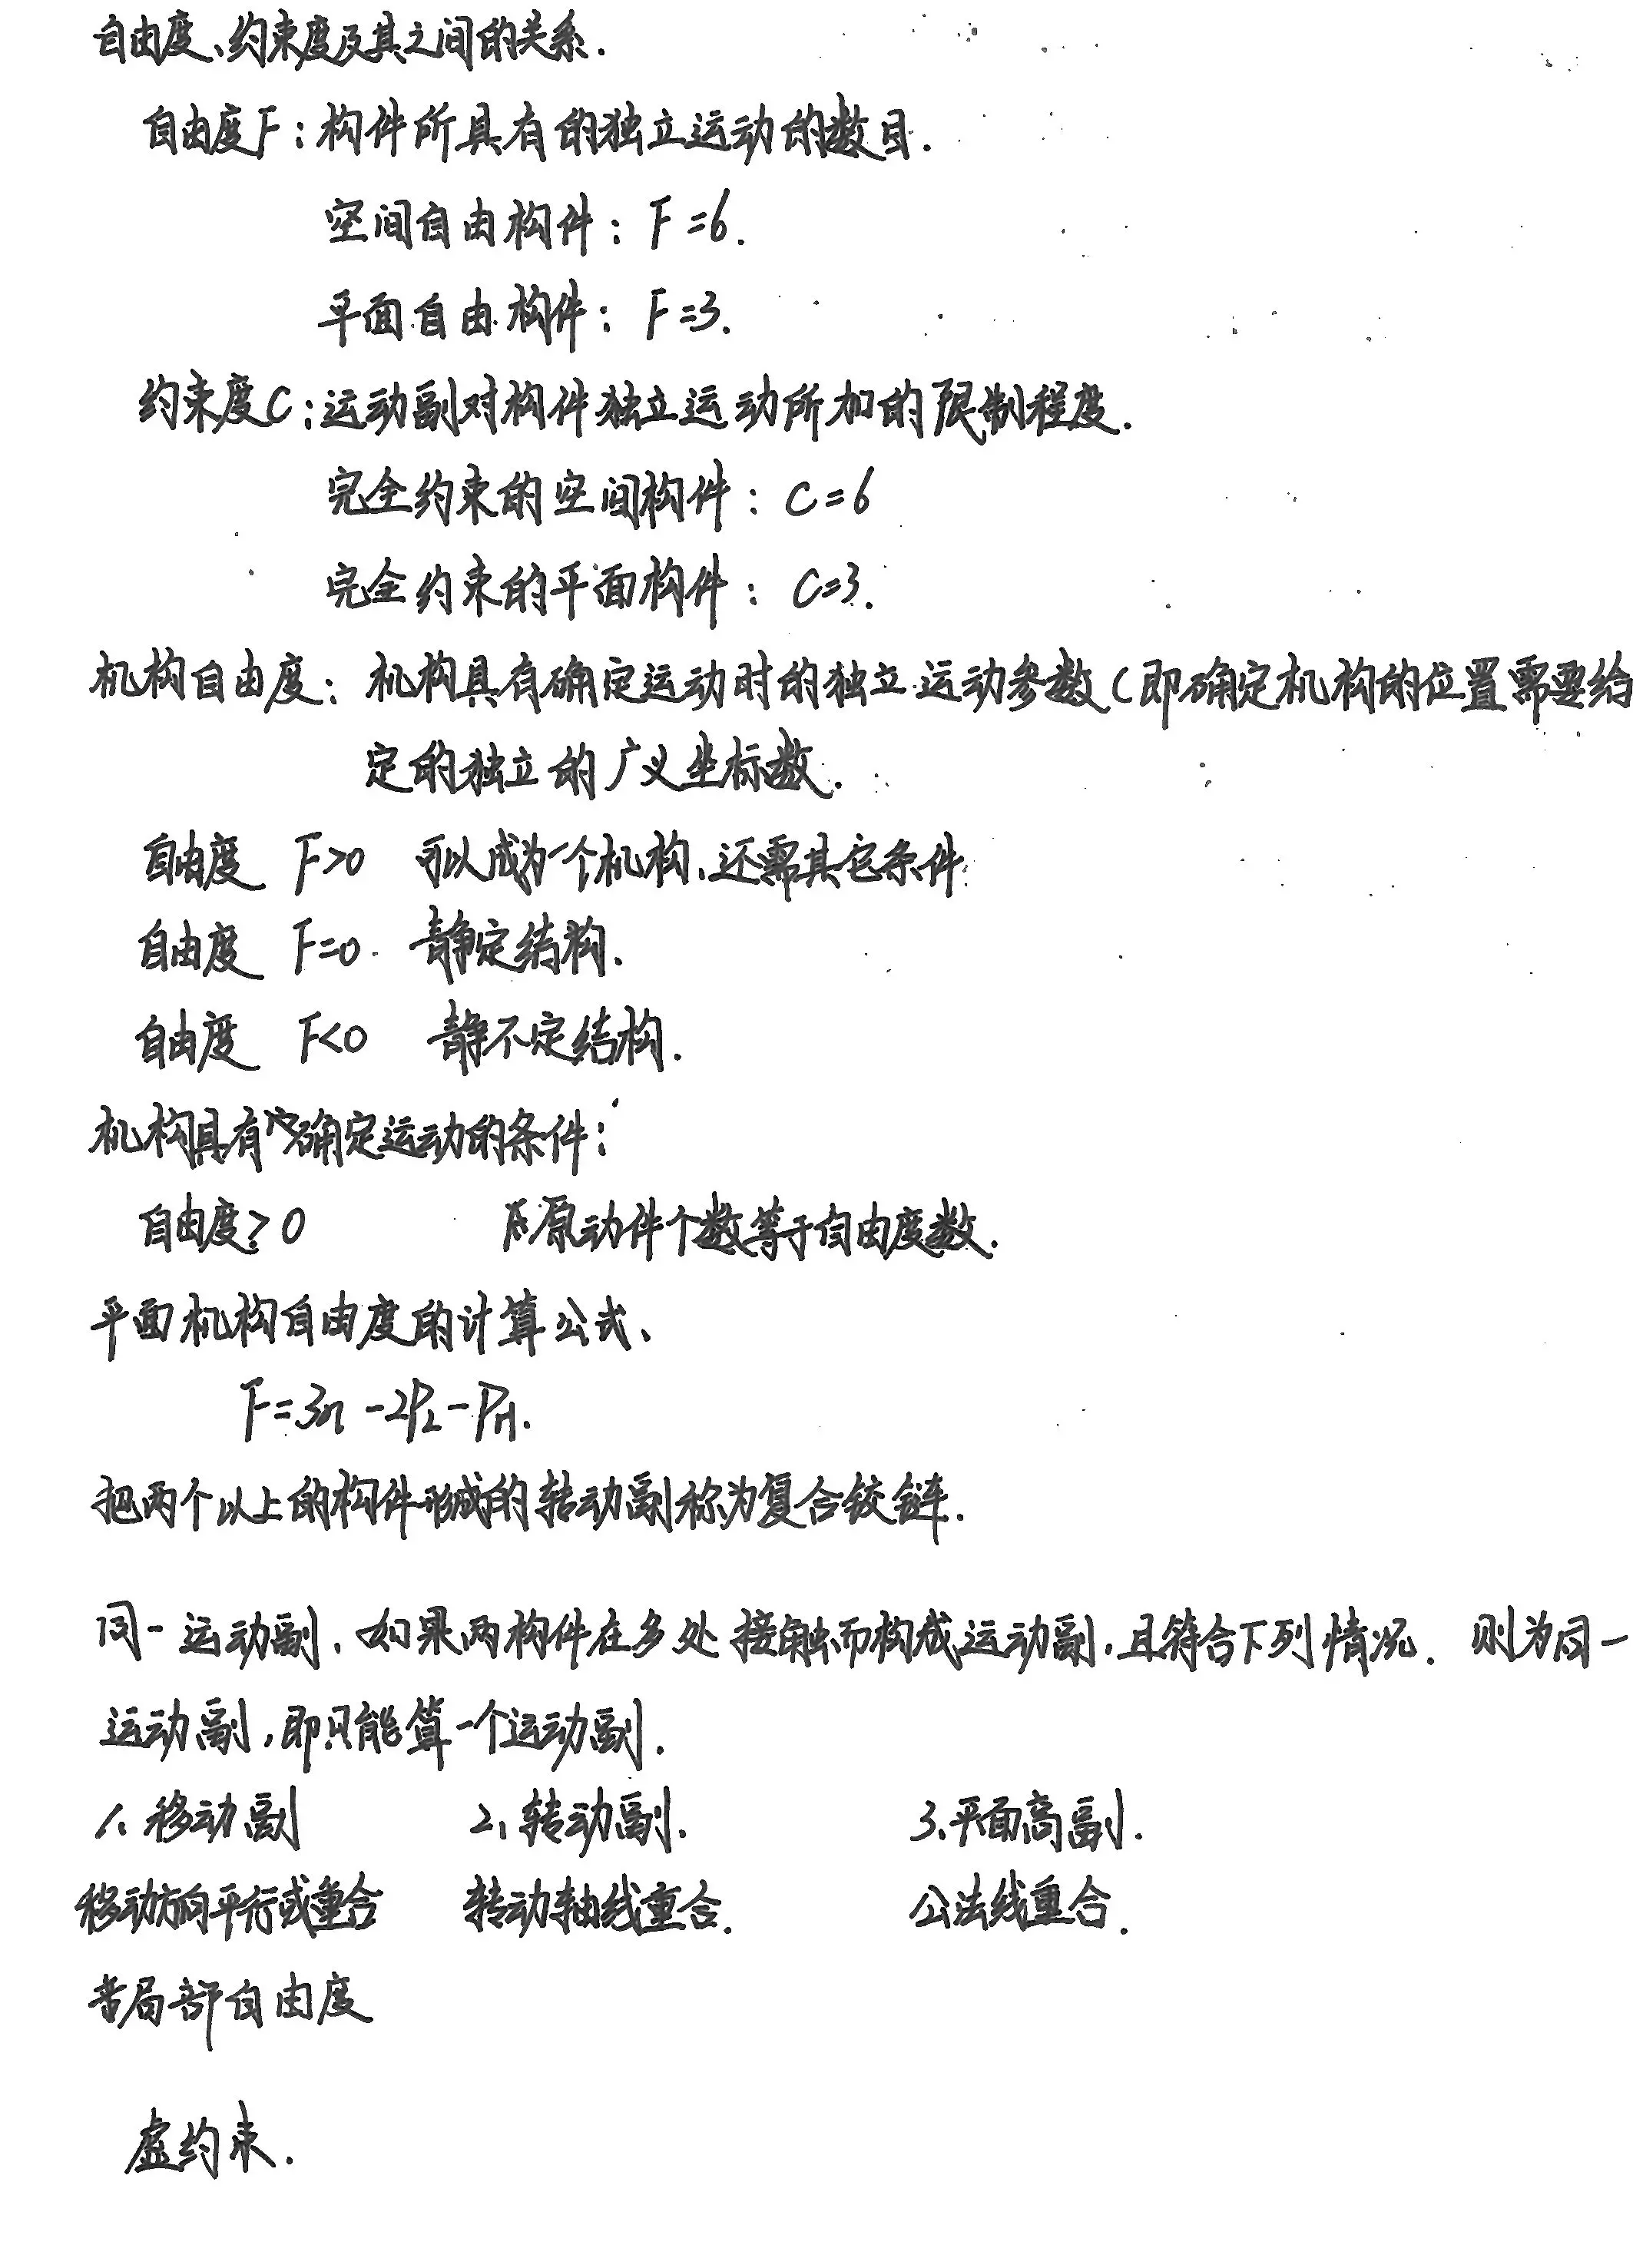 自由度、约束度及其之间的关系.
自由度F:构件所具有的独立运动的数目.
空间自由构件:F=6.
平面自由构件:F=3.
约束度C:运动副对构件独立运动所加的限制程度.
完全约束的空间构件:C=6
完全约束的平面构件:C=3.
机构自由度:机构具有确定运动时的独立运动参数(即确定机构的位置需要给
定的独立的广义坐标数.
自由度 F>0 可以成为一个机构,还需其它条件
自由度 F=0. 静定结构.
自由度 F<0 静不定结构.
机构具有确定运动的条件:
自由度>0 原动件个数等于自由度数.
平面机构自由度的计算公式、
F=3n-2PL-PH.
把两个以上的构件形成的转动副称为复合铰链.
同一运动副.如果两构件在多处接触而构成运动副,且符合下列情况.则为同一
运动副,即只能算一个运动副.
1、移动副 2、转动副. 3、平面高副.
移动方向平行或重合 转动轴线重合. 公法线重合.
局部自由度
虚约束.